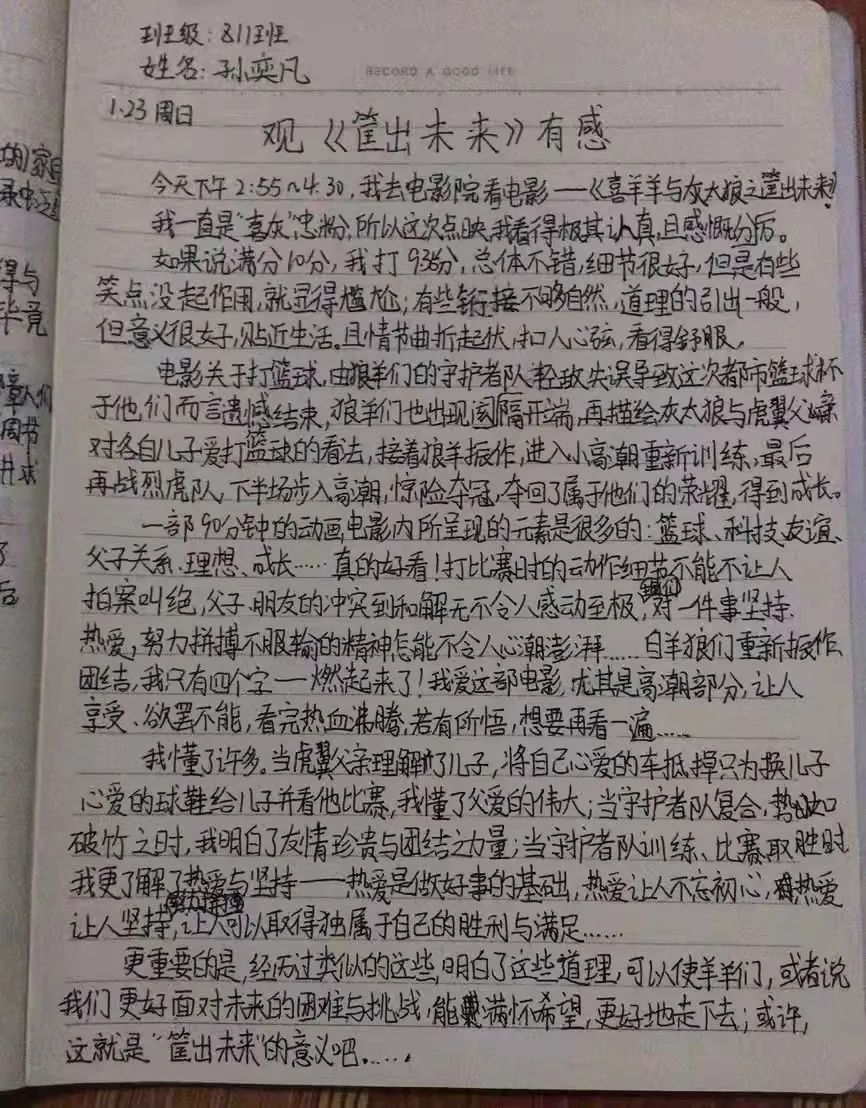 班级：811班
姓名：孙奕凡
RECORD A GOOD LIFE
1.23 周日
观《筐出未来》有感
今天下午2:55~4:30，我去电影院看电影——《喜羊羊与灰太狼之筐出未来》！
我一直是“喜灰”忠粉，所以这次点映，我看得极其认真，且感慨分厉。
如果说满分10分，我打9.36分，总体不错，细节很好，但是有些
笑点没起作用，就显得尴尬；有些衔接不够自然，道理的引出一般，
但意义很好，贴近生活。且情节曲折起伏，扣人心弦，看得舒服。
电影关于打篮球，由狼羊们的守护者队轻敌失误导致这次都市篮球杯
于他们而言遗憾结束，狼羊们也出现阂隔开端，再描绘灰太狼与虎翼父亲
对各自儿子爱打篮球的看法，接着狼羊振作，进入小高潮重新训练，最后
再战烈虎队，下半场步入高潮，惊险夺冠，夺回了属于他们的荣耀，得到成长。
一部90分钟的动画电影内所呈现的元素是很多的：篮球、科技、友谊、
父子关系、理想、成长……真的好看！打比赛时的动作细节不能不让人
拍案叫绝，父子、朋友的冲突到和解无不令人感动至极，对一件事坚持、
热爱，努力拼搏不服输的精神怎能不令人心潮澎湃……白羊狼们重新振作、
团结，我只有四个字——燃起来了！我爱这部电影，尤其是高潮部分，让人
享受、欲罢不能，看完热血沸腾，若有所悟，想要再看一遍……
我懂了许多。当虎翼父亲理解了儿子，将自己心爱的车抵掉只为换儿子
心爱的球鞋给儿子并看他比赛，我懂了父爱的伟大；当守护者队复合，势如
破竹之时，我明白了友情珍贵与团结之力量；当守护者队训练、比赛取胜时，
我更了解了热爱与坚持——热爱是做好事的基础，热爱让人不忘初心，热爱
让人坚持，让人可以取得独属于自己的胜利与满足……
更重要的是，经历过类似的这些，明白了这些道理，可以使羊羊们，或者说
我们更好面对未来的困难与挑战，能满怀希望，更好地走下去；或许，
这就是“筐出未来”的意义吧……